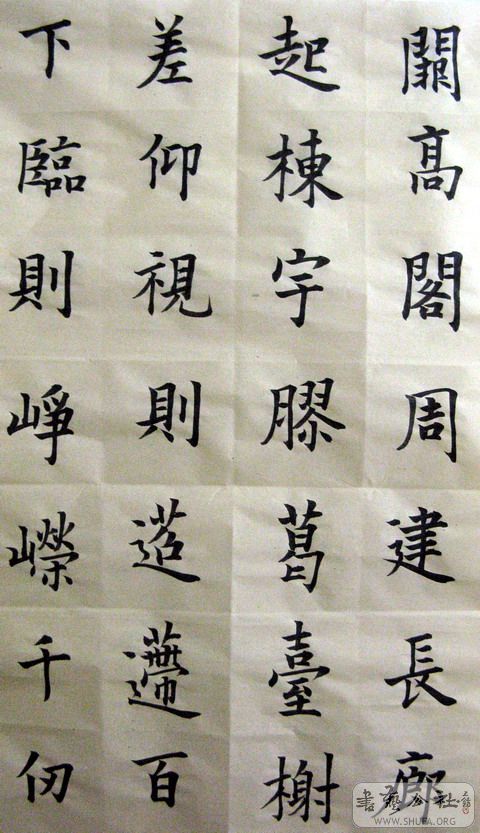 闕髙閣周建長廊
起棟宇膠葛臺榭
差仰視則迢遰百
下臨則崢嶸千仞
書藝公社
WWW.SHUFA.ORG